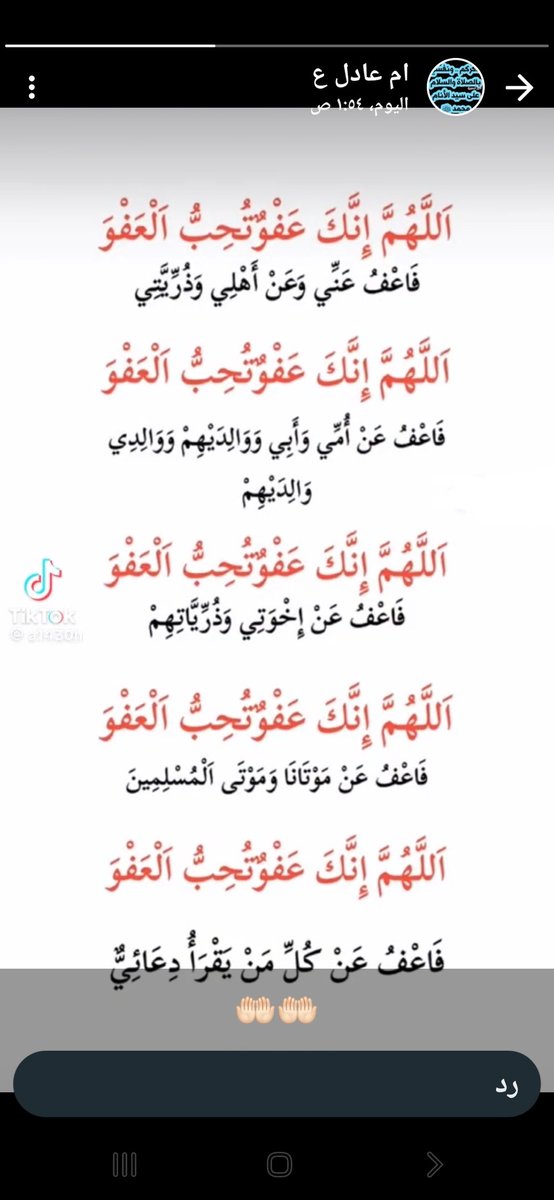 ام عادل ع
اليوم، ١:٥٤ ص
اَللَّهُمَّ إِنَّكَ عَفْوٌتُحِبُّ اَلْعَفْوَ
فَاعْفُ عَنِّي وَعَنْ أَهْلِي وَذُرِّيَّتِي
اَللَّهُمَّ إِنَّكَ عَفْوٌتُحِبُّ اَلْعَفْوَ
فَاعْفُ عَنْ أُمِّي وَأَبِي وَوَالِدَيْهِمْ وَوَالِدِي
وَالِدَيْهِمْ
اَللَّهُمَّ إِنَّكَ عَفْوٌتُحِبُّ اَلْعَفْوَ
فَاعْفُ عَنْ إِخْوَتِي وَذُرِّيَّاتِهِمْ
TikTok
اَللَّهُمَّ إِنَّكَ عَفْوٌتُحِبُّ اَلْعَفْوَ
فَاعْفُ عَنْ مَوْتَانَا وَمَوْتَى اَلْمُسْلِمِينَ
اَللَّهُمَّ إِنَّكَ عَفْوٌتُحِبُّ اَلْعَفْوَ
فَاعْفُ عَنْ كُلِّ مَنْ يَقْرَأُ دِعَائِيٌّ
🤲🏻🤲🏻
رد